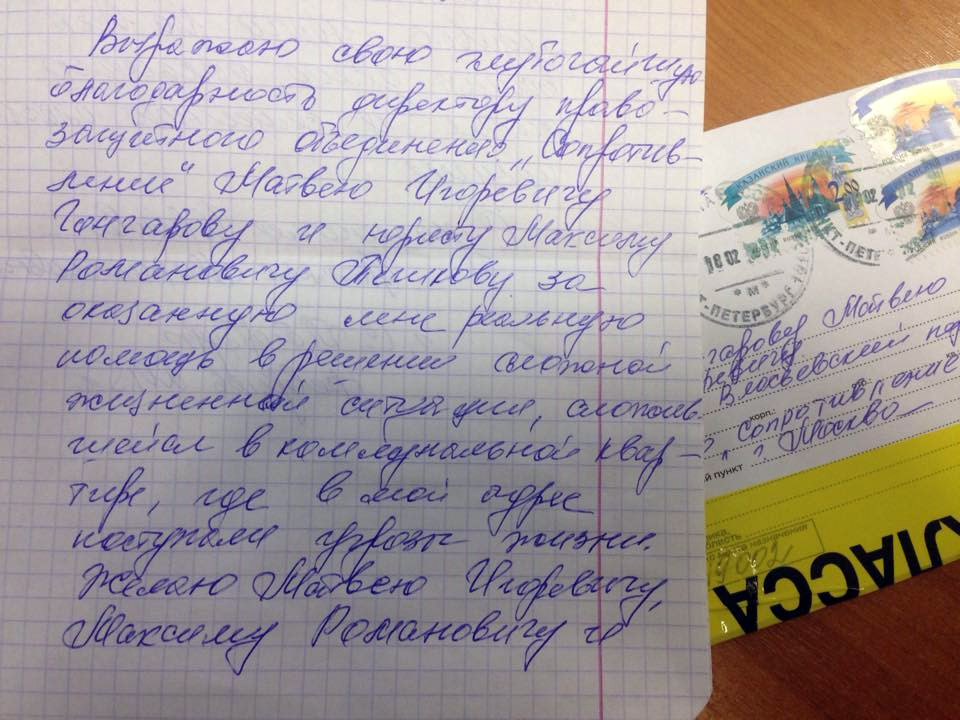 Выражаю свою глубочайшую
благодарность директору право-
защитного объединения „Сопротив-
ление" Матвею Игоревичу
Гончарову и юристу Максиму
Романовичу Пешкову за
оказанную мне реальную
помощь в решении сложной
жизненной ситуации, сложив-
шейся в коммунальной квар-
тире, где в мой адрес
поступали угрозы жизни.
Желаю Матвею Игоревичу,
Максиму Романовичу и
КАЗАНСКИЙ КРЕ
РОССИЯ
18 02
*М*
-ПЕТЕРБУРГ
КТ-ПЕТЕ
гарову Матвею
Власьевский пер
корп.:
Сопротивление
г. Москва
й пункт
назначения
КЛАССА